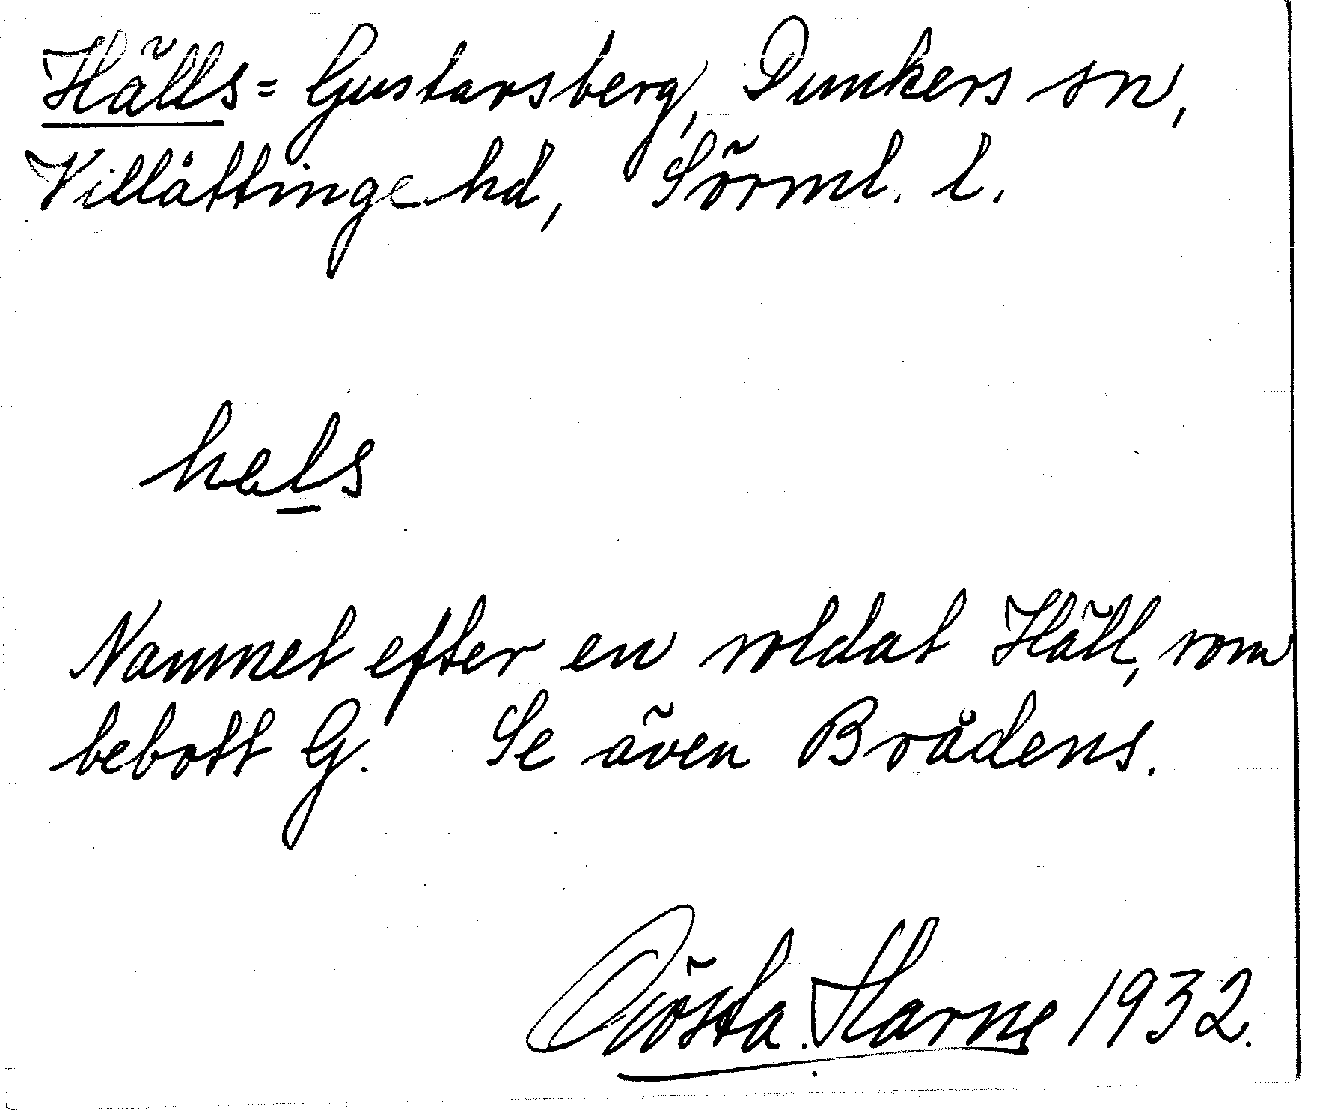 Hälls = Gustavsberg, Dunkers sn,
Villåttinge hd, Sörml. l.
hals
Namnet efter en soldat Häll, som
bebott G. Se även Brådens.
Gösta Harne 1932.